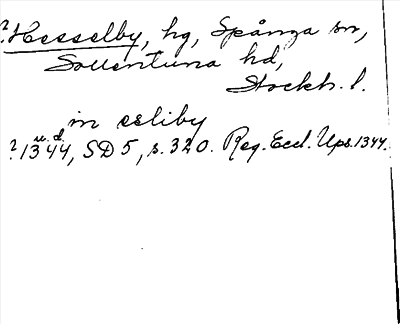 ?Hesselby, hg, Spånga sn,
Sollentuna hd,
Stockh. l.
in esliby
u.d.
?1344, SD 5, s. 320. Reg. Eccl. Ups. 1344.